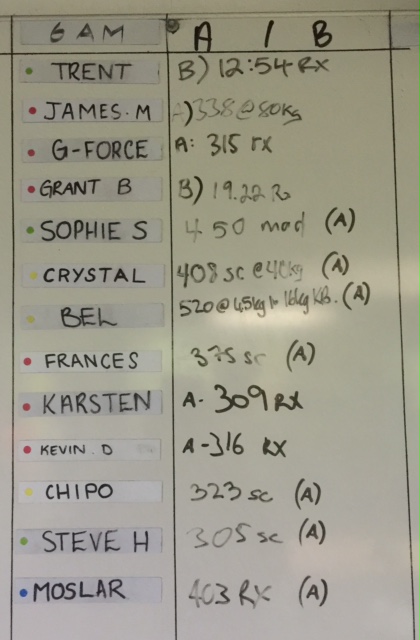 6 AM A / B
TRENT B) 12:54 RX
JAMES. M A) 338 @ 80kg
G-FORCE A: 315 rx
GRANT B B) 19.22 Rx
SOPHIE S 450 mod (A)
CRYSTAL 408 sc @ 40kg (A)
BEL 520 @ 45kg 16kg KB. (A)
FRANCES 375 sc (A)
KARSTEN A- 309 RX
KEVIN. D A-316 RX
CHIPO 323 sc (A)
STEVE H 305 sc (A)
MOSLAR 403 RX (A)